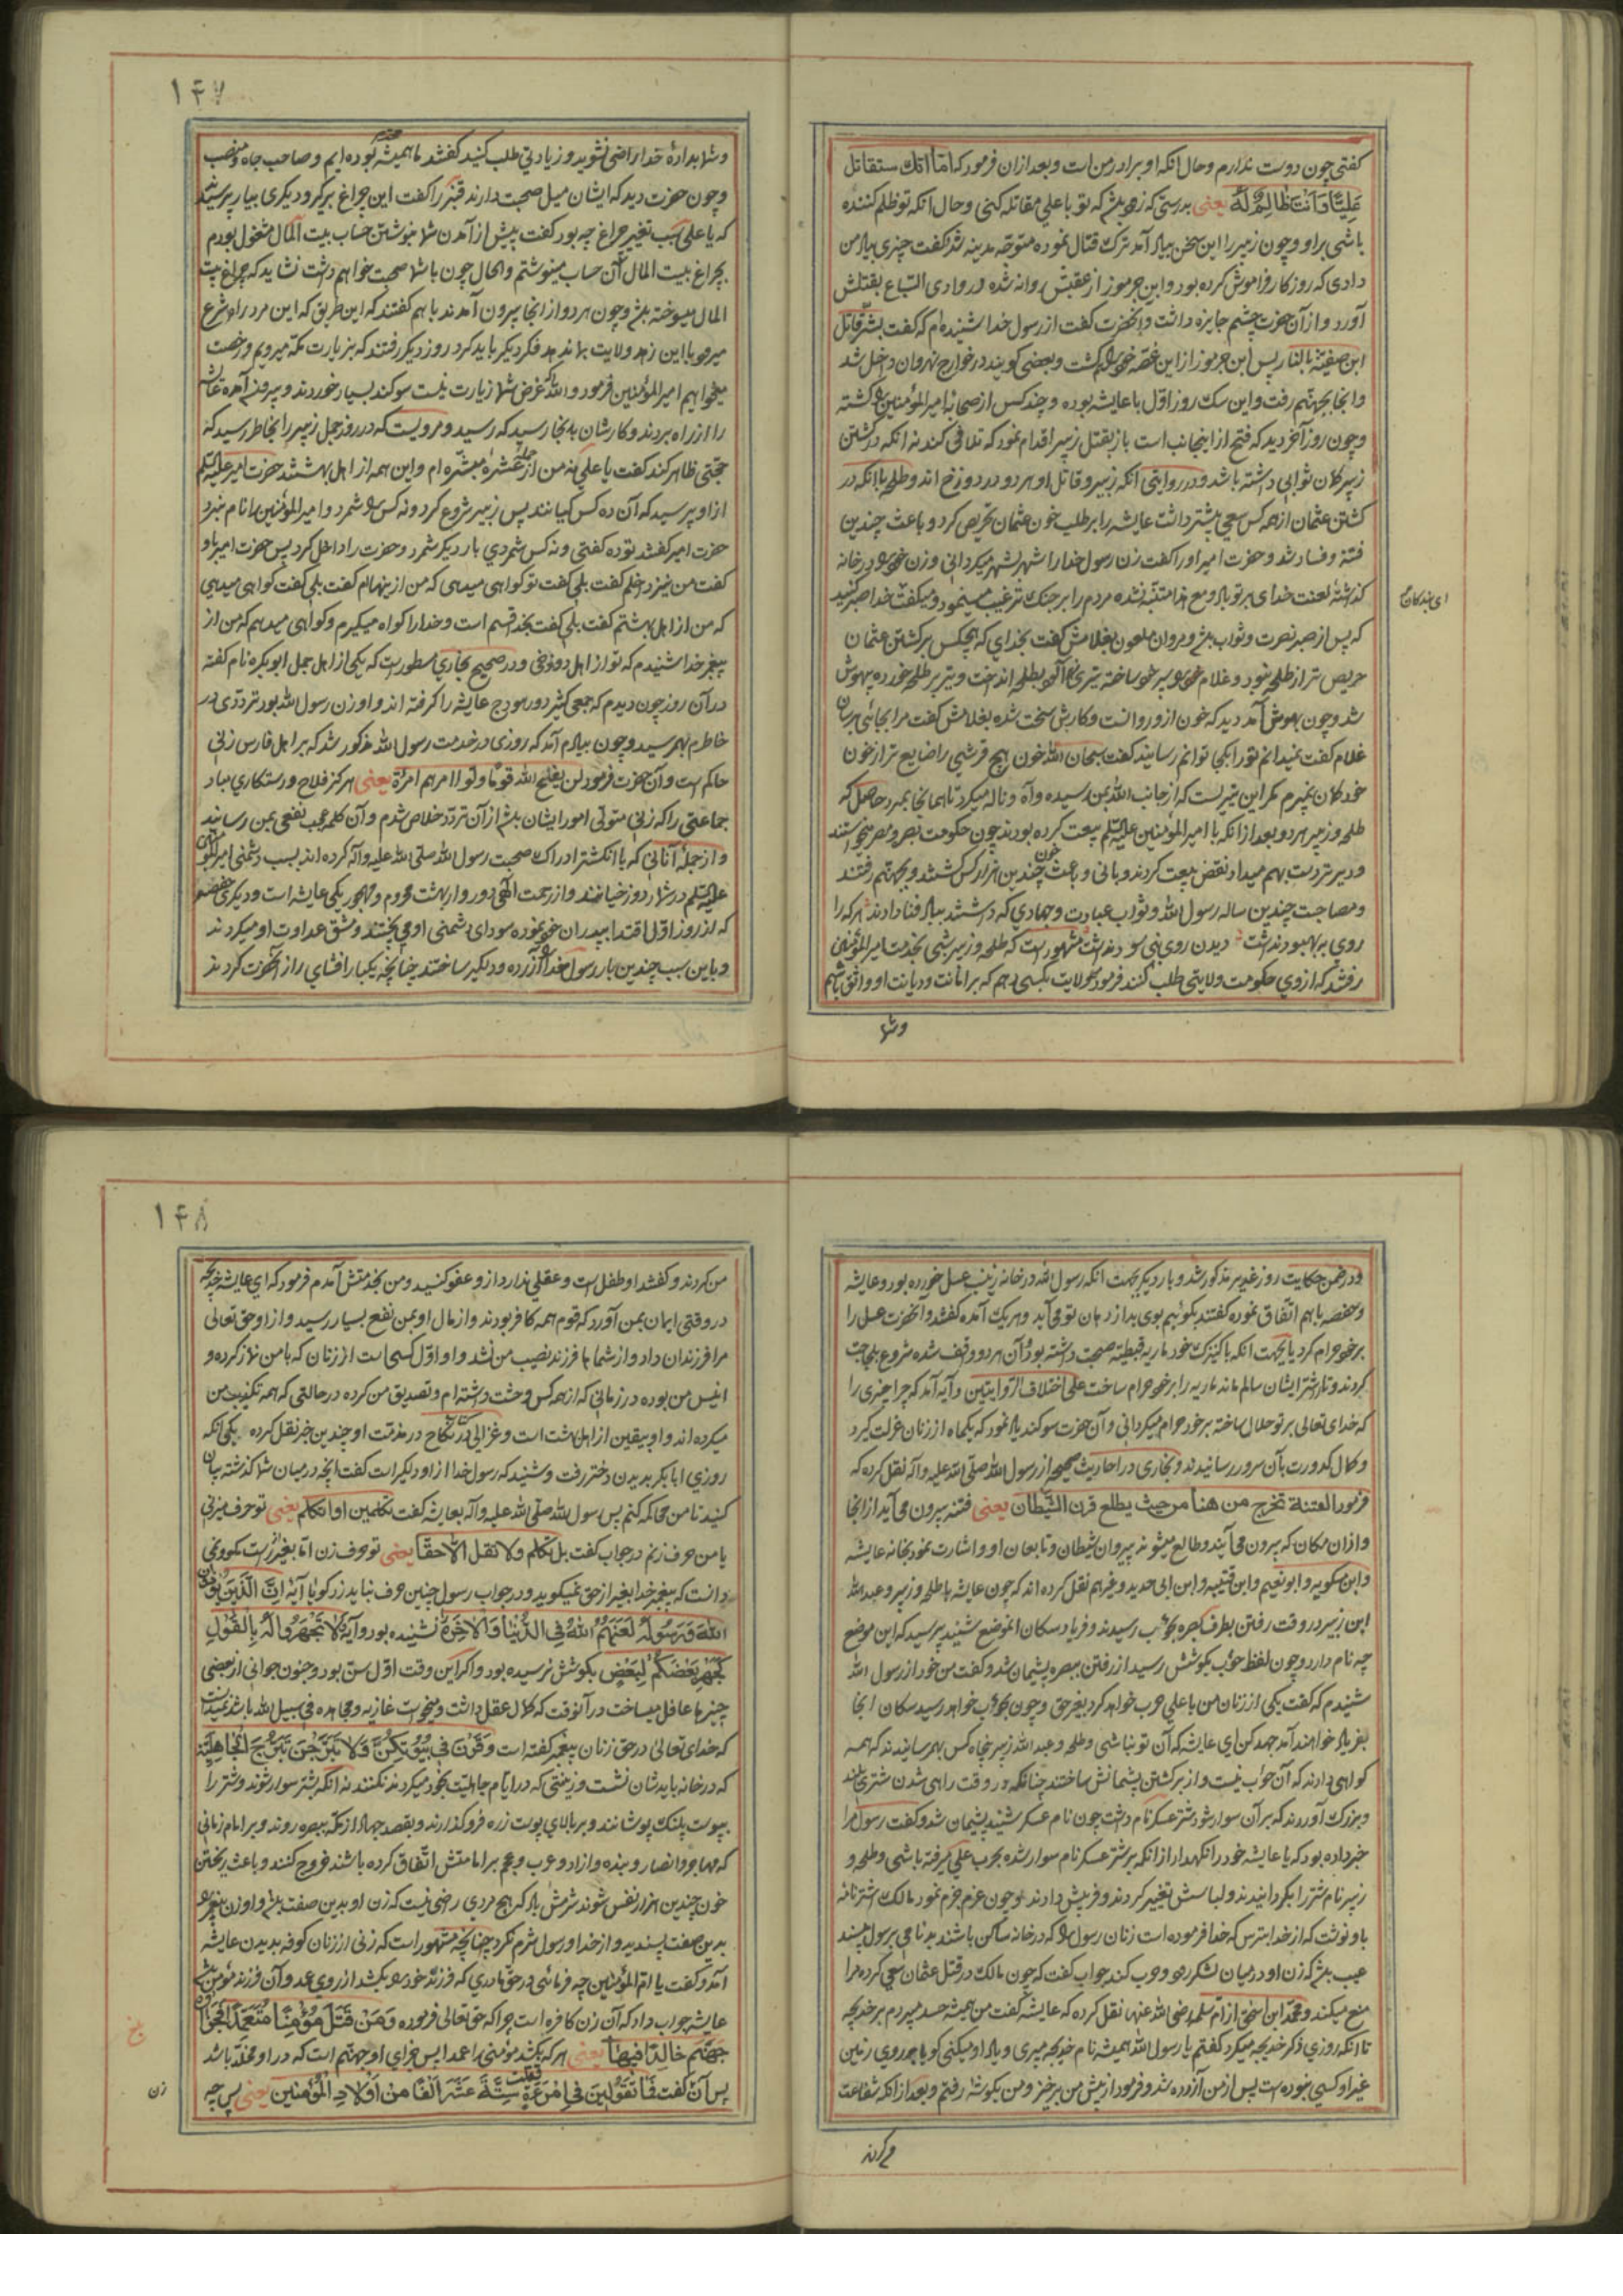 کفتی چون دوست ندارم وحال انکه او برادر من است وبعد ازان فرمود که اما انک ستقاتل
عَلِیًّا وَاَنْتَ ظَالِمٌ لَهُ یعنی بدرستی که زود باشد که تو با علی مقاتله کنی وحال انکه تو ظلم کننده
باشی بر او وچون زبیر را این سخن بیاد آمد ترک قتال نموده متوجه مدینه شد کفت چیزی بیاد من
دادی که روزکار فراموش کرده بود وابن جرموز از عقبش روانه شده در وادی السّباع بقتلش
آورد واز آن حضرت چشم جایزه داشت وآنحضرت کفت از رسول خدا شنیده ام که کفت بشّر قاتل
ابن صفیّة بالنار پس ابن جرموز از این غصّه خود را کشت وبعضی کویند در خوارج نهروان داخل شد
وانجا بجهنّم رفت واین سک روز اوّل با عایشه بوده وچند کس از صحابه امیرالمؤمنین را کشته
وچون روز آخر دید که فتح از اینجانب است باز بقتل زبیر اقدام نمود که تلافی کند نه انکه در کشتن
زبیر کمان ثوابی داشته باشد ودر روایتی انکه زبیر وقاتل او هر دو در دوزخ اند وطلحه با انکه در
کشتن عثمان از همه کس سعی بیشتر داشت عایشه را بر طلب خون عثمان تحریص کرد وباعث چندین
فتنه وفساد شد وحضرت امیر اورا کفت زن رسول خدا را شهر بشهر میکردانی وزن خود را در خانه
کذاشته لعنت خدای بر تو باد ومع هذا متنبّه نشده مردم را بر جنک ترغیب مینمود ومیکفت خدا صبر کنید
ای بندکان
که پس از صبر نصرت وثواب باشد ومروان ملعون بغلامش کفت بخدای که هیچکس بر کشتن عثمان
حریص تر از طلحه نبود وغلام خود را سپر خود ساخته تیری زهرآلود بطلحه انداخت وتیر بر طلحه خورده بیهوش
شد وچون بهوش آمد دید که خون ازو روانست وکارش سخت شده بغلامش کفت مرا بجائی برسان
غلام کفت نمیدانم تو را بکجا توانم رسانید کفت سبحان الله خون هیچ قرشیی را ضایع تر از خون
خود کمان نمیبرم مکر این تیریست که از جانب الله بمن رسیده وآه وناله میکرد تا همانجا بمرد حاصل که
طلحه وزبیر هر دو بعد از انکه با امیرالمؤمنین علیه السلم بیعت کرده بودند چون حکومت بصره ومصر میخواستند
ودیر تر دست بهم میداد نقض بیعت کردند وبانی وباعث خون چندین هزار کس شدند وبجهنم رفتند
ومصاحبت چندین ساله رسول الله وثواب عبادت وجهادی که داشتند بباد فنا دادند هر که را
روی به بهبود نداشت دیدن روی نبی سود نداشت مشهور است که طلحه وزبیر شبی بخدمت امیرالمؤمنین
رفتند که ازوی حکومت ولایتی طلب کنند فرمود ولایت بکسی دهم که بر امانت ودیانت او واثق باشم
وشما
۱۴۷
وشما بدادهٔ خدا راضی نشوید وزیادتی طلب کنید کفتند ما همیشه محترم بوده ایم وصاحب جاه ومنصب
وچون حضرت دید که ایشان میل صحبت دارند قنبر را کفت این چراغ برکیر ودیکری بیار پرسیدند
که یا علی سبب تغییر چراغ چه بود کفت پیش از آمدن شما بنوشتن حساب بیت المال مشغول بودم
بچراغ بیت المال آن حساب مینوشتم والحال چون با شما صحبت خواهم داشت نشاید که چراغ بیت
المال میسوخته باشد وچون هر دو از انجا بیرون آمدند با هم کفتند که این طریق که این مرد راه شرع
میرود با این زهد ولایت بما ندهد فکر دیکر باید کرد روز دیکر رفتند که بزیارت مکه میرویم ورخصت
میخواهیم امیرالمؤمنین فرمود والله که غرض شما زیارت نیست سوکند بسیار خوردند وبیرون آمده عایشه
را از راه بردند وکارشان بدانجا رسید که رسید ومرویست که در روز جمل زبیر را بخاطر رسید که
حجّتی ظاهر کند کفت یا علی نه من از جمله عشرهٔ مبشّره ام واین همه از اهل بهشتند حضرت امیر علیه السلم
ازاو پرسید که آن ده کس کیانند پس زبیر شروع کرد ونه کس را شمرد وامیرالمؤمنین را نام نبرد
حضرت امیر کفتند تو ده کفتی ونه کس شمردی بار دیکر شمرد وحضرت را داخل کرد پس حضرت امیر باو
کفت من نیز داخلم کفت بلی کفت تو کواهی میدهی که من از اینهاام کفت بلی کفت کواهی میدهی
که من از اهل بهشتم کفت بلی کفت بخدا قسم است وخدا را کواه میکیرم وکواهی میدهم که من از
پیغمبر خدا شنیدم که تو از اهل دوزخی ودر صحیح بخاری مسطور است که یکی از اهل جمل ابوبکره نام کفته
در آن روز چون دیدم که جمعی کثیر دور هودج عایشه را کرفته اند واو زن رسول الله بود تردّدی در
خاطرم بهم رسید وچون بیادم آمد که روزی در خدمت رسول الله مذکور شد که بر اهل فارس زنی
حاکم است وآن حضرت فرمود لن یفلح الله قوما ولّوا امرهم امرأة یعنی هرکز فلاح ورستکاری مباد
جماعتی را که زنی متولّی امور ایشان باشد از آن تردّد خلاص شدم وآن کلمه عجب نفعی بمن رسانید
واز جمله آنانی که با انکشتر ادراک صحبت رسول الله صلّی الله علیه وآله کرده اند بسبب دشمنی امیرالمؤمنین
علیه السلم در شمار دوزخیانند واز رحمت الهی دور واز بهشت محروم ومهجور یکی عایشه است ودیکری حفصه
که از روز اوّل اقتدا بپدران خود نموده سودای دشمنی او می پختند ومشق عداوت او میکردند
وباین سبب چندین بار رسول خدا را آزرده ودلکیر ساختند چنانچه یکبار افشای راز آنحضرت کردند
ودر ضمن حکایت روز غدیر مذکور شد وبار دیکر بجهت انکه رسول الله در خانه زینب عسل خورده بود وعایشه
وحفصه باهم اتّفاق نموده کفتند بکوئیم بوی بد از دهان تو می آید وهر یک آمده کفتند وآنحضرت عسل را
بر خود حرام کرد یا بجهت انکه با کنیزک خود ماریه قبطیّه صحبت داشته بود وآن هر دو واقف شده شروع بلجاجت
کردند وتا از شرّ ایشان سالم ماند ماریه را بر خود حرام ساخت علی اختلاف الرّوایتین وآیه آمد که چرا چیزی را
که خدای تعالی بر تو حلال ساخته بر خود حرام میکردانی وآن حضرت سوکند یاد نمود که یکماه از زنان عزلت کیرد
وکمال کدورت بآن سرور رسانیدند وبخاری در احادیث صحیحه از رسول الله صلّی الله علیه وآله نقل کرده که
فرمود الفتنة تخرج من هنا من حیث یطلع قرن الشّیطان یعنی فتنه بیرون می آید از انجا
وازان مکان که بیرون می آیند وطالع میشوند پیروان شیطان وتابعان او واشارت نمود بخانه عایشه
وابن مسکویه وابونعیم وابن قتیبه وابن ابی حدید وغیرهم نقل کرده اند که چون عایشه با طلحه وزبیر وعبدالله
ابن زبیر در وقت رفتن بطرف بصره بحوأب رسیدند وفریاد سکان انموضع شنید پرسید که این موضع
چه نام دارد وچون لفظ حوأب بکوشش رسید از رفتن ببصره پشیمان شد وکفت من خود از رسول الله
شنیدم که کفت یکی از زنان من با علی حرب خواهد کرد بغیر حق وچون بحوأب خواهد رسید سکان انجا
بفریاد خواهند آمد جهد کن ای عایشه که آن تو نباشی وطلحه وعبدالله زبیر پنجاه کس بهم رسانیدند که همه
کواهی دادند که آن حوأب نیست واز برکشتن پشیمانش ساختند چنانکه در وقت راهی شدن شتری بلند
وبزرک آوردند که بر آن سوار شود شتر عسکر نام داشت چون نام عسکر شنید پشیمان شد وکفت رسول مرا
خبر داده بود که یا عایشه خود را نکهدار از انکه بر شتر عسکر نام سوار شده بحرب علی میرفته باشی وطلحه و
زبیر نام شتر را بکردانیدند ولباسش تغییر کردند وفریبش دادند وچون عزم جزم نمود مالک اشتر نامه
باو نوشت که از خدا بترس که خدا فرموده است زنان رسول را که در خانه ساکن باشند بدنامی برسول مپسند
عیب باشد که زن او در میان لشکر رود وحرب کند جواب کفت که چون مالک در قتل عثمان سعی کرده مرا
منع میکند ومحمّد ابن اسحق از امّ سلمه رضی الله عنها نقل کرده که عایشه کفت من همیشه حسد میبردم بر خدیجه
تا انکه روزی ذکر خدیجه میکرد کفتم یا رسول الله همیشه نام خدیجه میبری ویاد او میکنی کویا بر روی زمین
غیر او کسی نبوده است پس از من آزرده شد وفرمود از پیش من برخیز ومن بکوشه رفتم وبعد از انکه شفاعت
می کردند
۱۴۸
من کردند وکفتند او طفل است وعقلی ندارد ازو عفو کنید ومن بخدمتش آمدم فرمود که ای عایشه خدیجه
در وقتی ایمان بمن آورد که قوم همه کافر بودند واز مال او بمن نفع بسیار رسید واز او حق تعالی
مرا فرزندان داد واز شماها فرزند نصیب من نشد واو اوّل کسی است از زنان که با من نماز کرده و
انیس من بوده در زمانی که از همه کس وحشت داشته ام وتصدیق من کرده در حالتی که همه تکذیب من
میکرده اند واو بیقین از اهل بهشت است وغزالی در کتاب نکاح در مذمّت او چندین خبر نقل کرده یکی انکه
روزی ابابکر بدیدن دختر رفت وشنید که رسول خدا از او دلکیر است کفت انچه در میان شما کذشته بیان
کنید تا من محاکمه کنم پس رسول الله صلّی الله علیه وآله بعایشه کفت تکلمین او اتکلم یعنی تو حرف میزنی
یا من حرف زنم در جواب کفت بل تکلم ولا تقل الاّ حقّا یعنی تو حرف زن امّا بغیر راست مکو ونمی
دانست که پیغمبر خدا بغیر از حق نمیکوید ودر جواب رسول چنین حرف نباید زد کویا آیه اِنَّ الَّذینَ یُؤْذُونَ
اللهَ وَرَسُولَهُ لَعَنَهُمُ اللهُ فِی الدُّنْیَا وَالآخِرَةِ نشنیده بود وآیه وَلاَ تَجْهَرُوا لَهُ بِالْقَوْلِ
کَجَهْرِ بَعْضِکُمْ لِبَعْضٍ بکوشش نرسیده بود واکر این وقت اوّل سنّ بود وجنون جوانی از بعضی
چیزها غافل میساخت در آنوقت که کمال عقل داشت ومیخواست غازیه ومجاهده فی سبیل الله باشد نمیدانست
که خدای تعالی در حق زنان پیغمبر کفته است وَقَرْنَ فِی بُیُوتِکُنَّ وَلاَ تَبَرَّجْنَ تَبَرُّجَ الْجَاهِلِیَّةِ
که در خانه بایدشان نشست وزینتی که در ایام جاهلیّت بخود میکردند نکنند نه انکه بشتر سوار شوند وشتر را
بپوست پلنک پوشانند وبر بالای پوست زره فروکذارند وبقصد جهاد از مکه ببصره روند وبر امام زمانی
که مهاجر وانصار وبنده وازاد وعرب وعجم بر امامتش اتّفاق کرده باشند خروج کنند وباعث ریختن
خون چندین هزار نفس شوند شرمش باد که هیچ مردی راضی نیست که زن او بدین صفت باشد واو زن پیغمبر را
بدین صفت پسندید واز خدا ورسول شرم نکرد چنانچه مشهور است که زنی از زنان کوفه بدیدن عایشه
آمد وکفت یا امّ المؤمنین چه فرمائی در حق مادری که فرزند خود را بکشد از روی عمد وآن فرزند مؤمن باشد
عایشه جواب داد که آن زن کافره است چرا که حق تعالی فرموده وَمَنْ قَتَلَ مُؤْمِنًا مُتَعَمِّدًا فَجَزَاؤُهُ
جَهَنَّمُ خَالِدًا فِیهَا یعنی هر که بکشد مؤمنی را عمدا پس جزای او جهنّم است که در او مخلّد باشد
پس آن زن کفت فَمَا تَقُولِینَ فِی امْرَءَةٍ قَتَلَتْ سِتَّةَ عَشَرَ اَلْفًا مِنْ اَوْلاَدِ الْمُؤْمِنِین یعنی پس چه